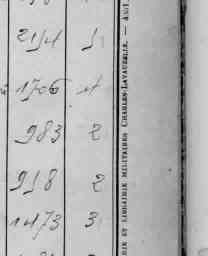 2194 1
1706 4
983 2
918 2
1473 3
RIE ET LIBRAIRIE MILITAIRES CHARLES-LAVAUZELLE. —